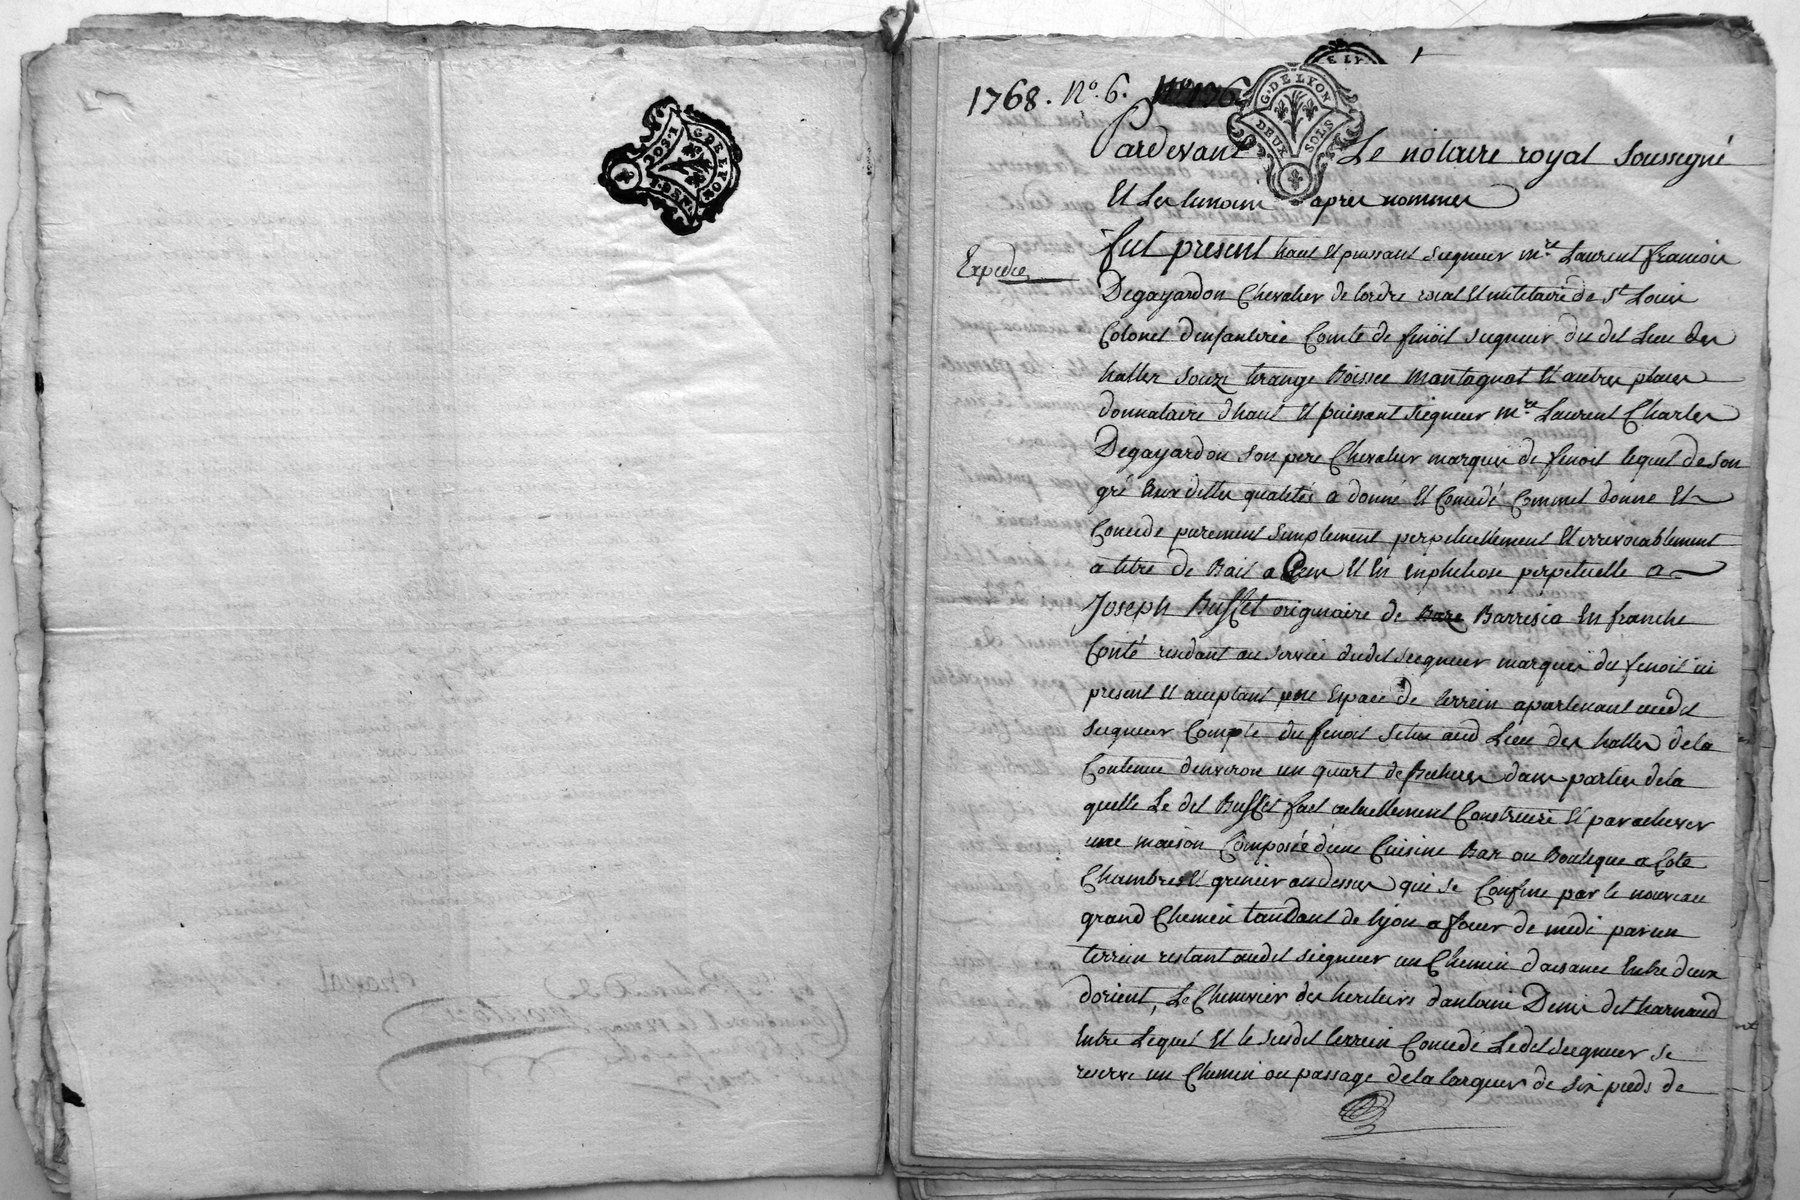 G. DE LYON
2031
1768. N.o 6. N.o 136
G. DE LYON
DEUX SOLS
Pardevant Le notaire royal soussigné
Et Les temoins apres nommes
Expedié
fut present haut Et puissant seigneur mre. Laurent francois
Degayardon Chevalier de Lordre roial Et militaire de St. Louis
Colonel dinfanterie Comte de fenoit seigneur du dit Lieu des
halles Souzi trange Boissee Montagnat Et autres places
donnataire dhaut Et puissant seigneur mre. Laurent Charles
Degayardon son pere Chevalier marquis de fenoit lequel de son
gré Eux dittes qualités a donné Et Concedé Comme il donne Et
Concede purement simplement perpetuellement Et irrevocablement
a titre de Bail a Cens Et En Enphiteose perpetuelle a
Joseph Buffet originaire de Baze Barresia En franche
Conté residant au service dudit seigneur marquis du fenoit ici
present Et acceptant une Espace de terrein apartenant audit
seigneur Compte du fenoit situe aud Lieu des halles de la
Contenue denviron un quart de Bicheres dans partie de la
quelle Le dit Buffet fait actuellement Construire Et parachever
une maison Composée d'une Cuisine Bas ou Boutique a Coté
Chambres Et grenier audessus qui se Confine par le nouveau
grand Chemin tandant de lyon a feur de midi par un
terrein restant audit seigneur un Chemin daisance Entre deux
dorient, Le Chenevier des heritiers dantoine Denis dit harnaud
Entre Lequel Et le susdit terrein Concedé Ledit seigneur se
reserve un Chemin ou passage de la largeur de six pieds de